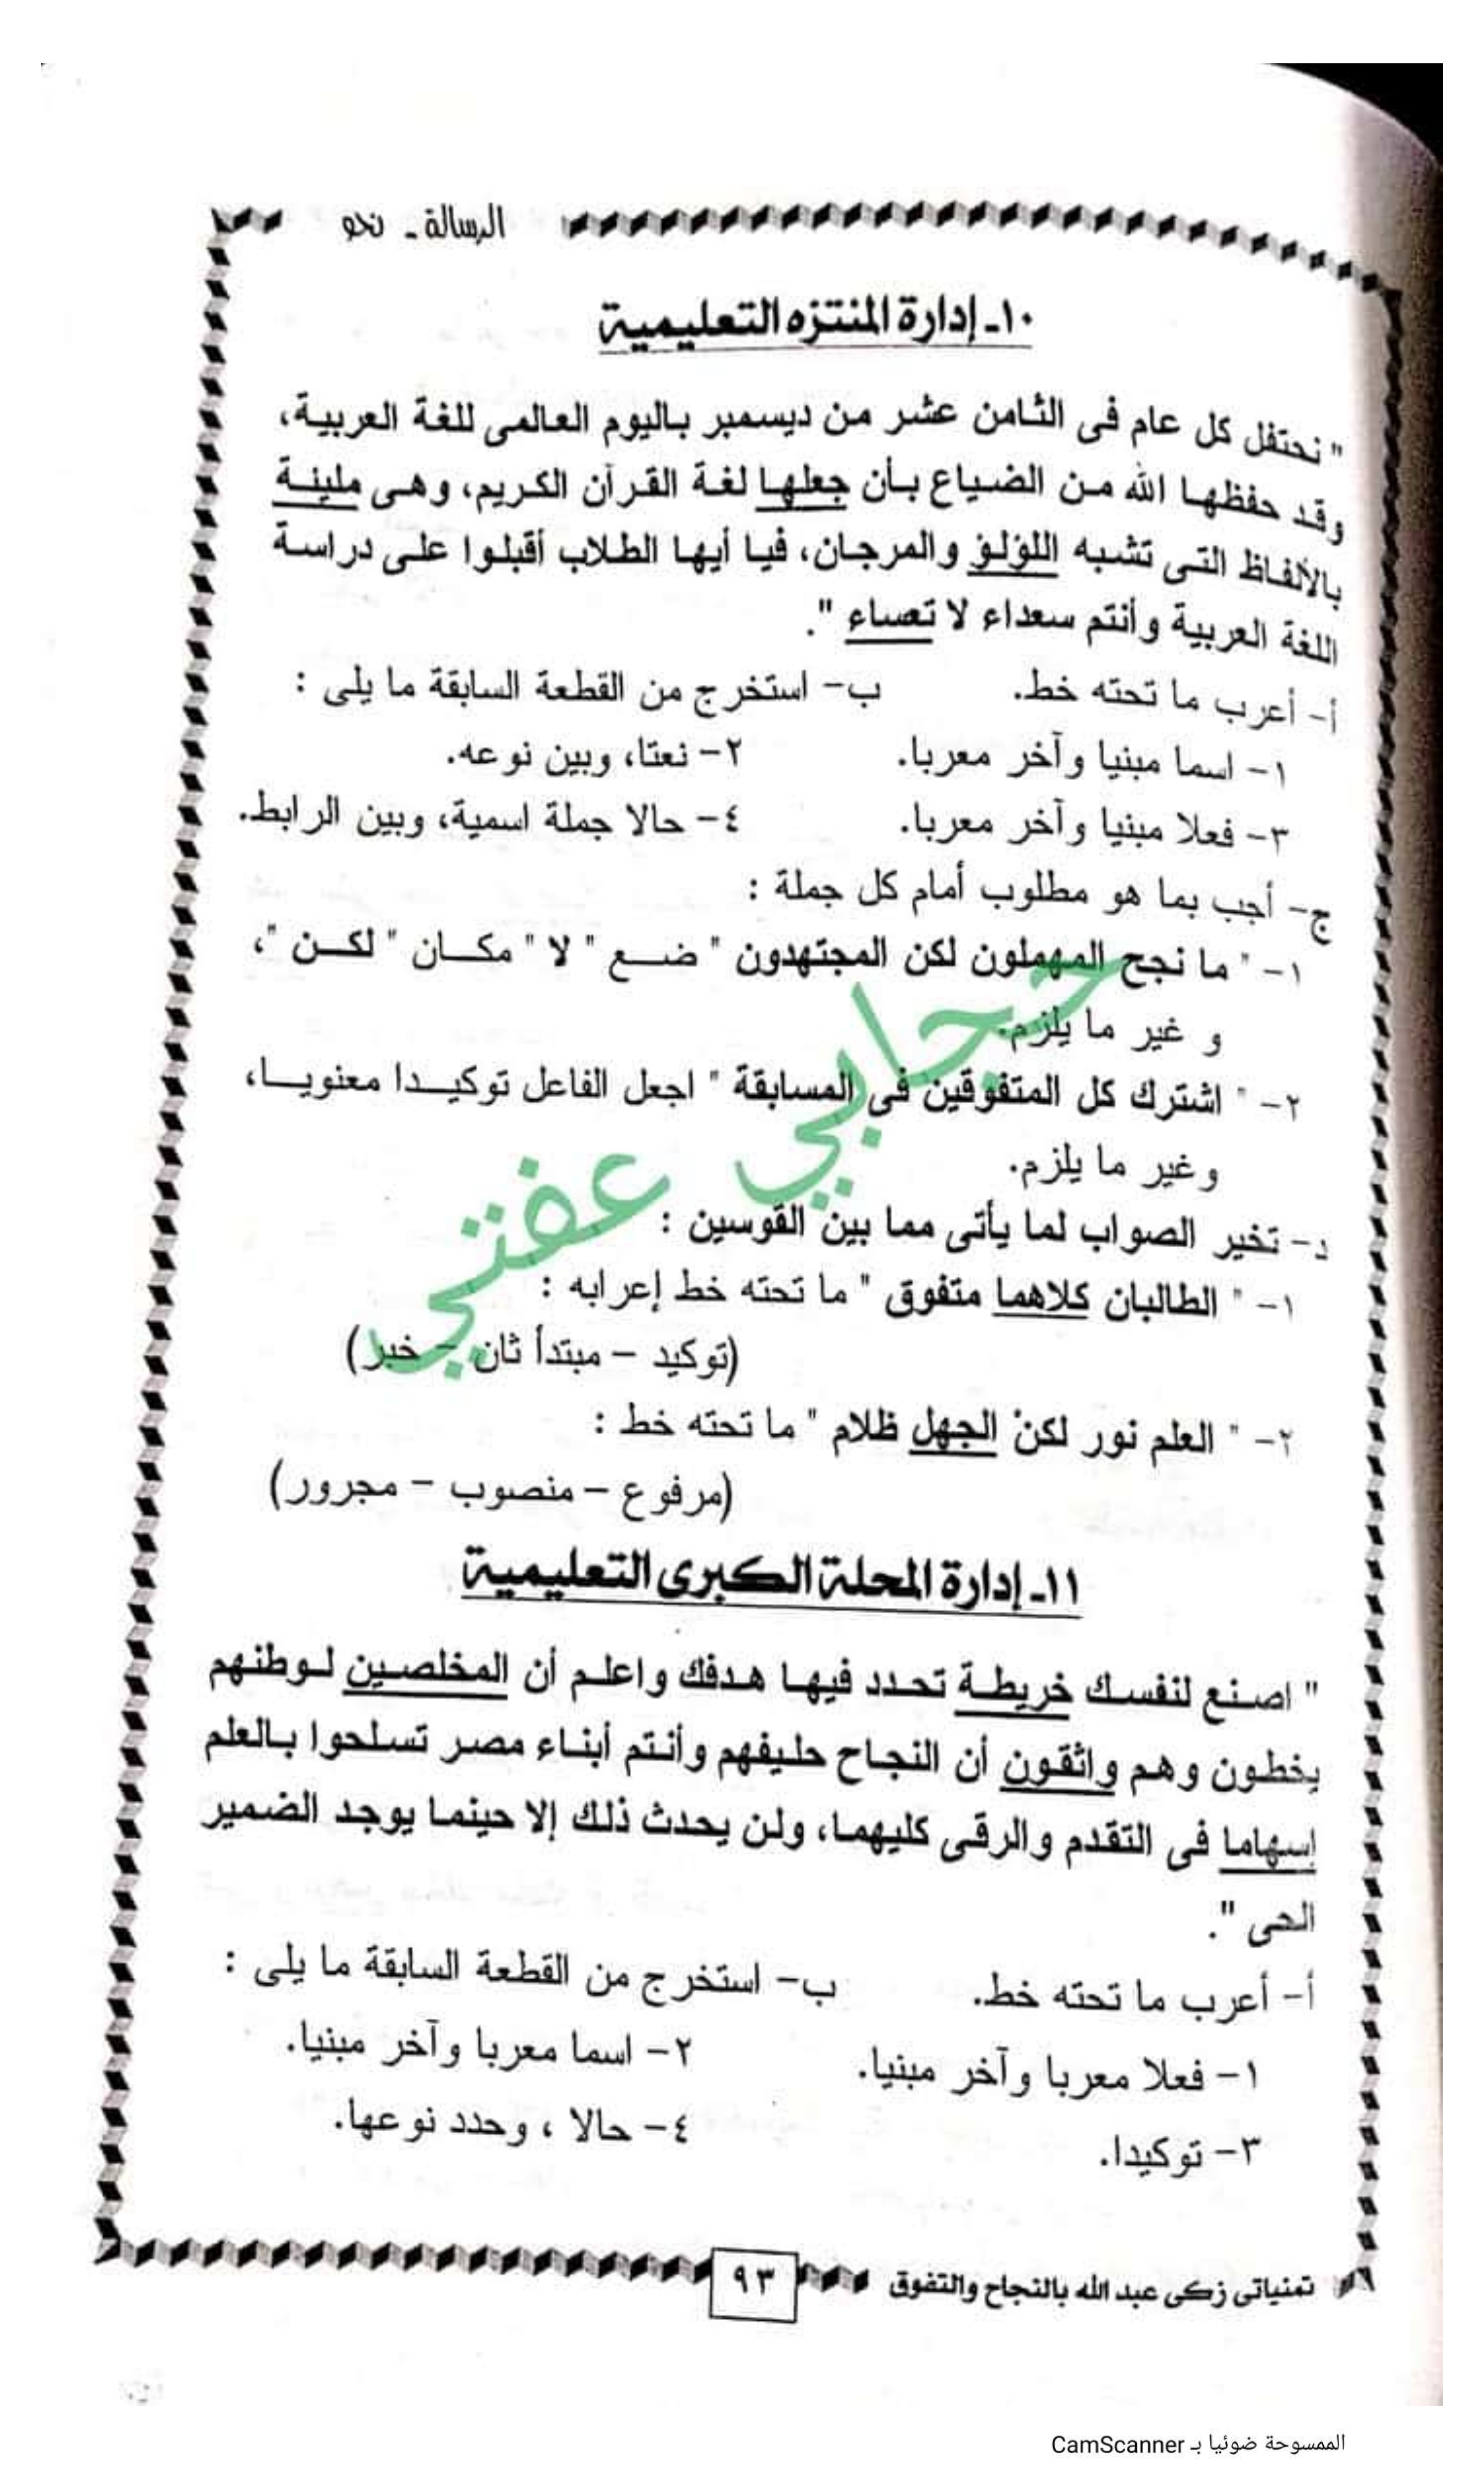 الرسالة - نحو
١٠- إدارة المنتزه التعليمية
" نحتفل كل عام فى الثامن عشر من ديسمبر باليوم العالمى للغة العربية،
وقد حفظها الله من الضياع بأن جعلها لغة القرآن الكريم، وهى مليئة
بالألفاظ التى تشبه اللؤلؤ والمرجان، فيا أيها الطلاب أقبلوا على دراسة
اللغة العربية وأنتم سعداء لا تعساء ".
أ- أعرب ما تحته خط. ب- استخرج من القطعة السابقة ما يلى :
١- اسما مبنيا وآخر معربا. ٢- نعتا، وبين نوعه.
٣- فعلا مبنيا وآخر معربا. ٤- حالا جملة اسمية، وبين الرابط.
ج- أجب بما هو مطلوب أمام كل جملة :
١- " ما نجح المهملون لكن المجتهدون " ضع " لا " مكان " لكن "،
و غير ما يلزم.
٢- " اشترك كل المتفوقين فى المسابقة " اجعل الفاعل توكيدا معنويا،
وغير ما يلزم.
حجابي عفتي
د- تخير الصواب لما يأتى مما بين القوسين :
١- " الطالبان كلاهما متفوق " ما تحته خط إعرابه :
(توكيد - مبتدأ ثان - خبر)
٢- " العلم نور لكنْ الجهل ظلام " ما تحته خط :
(مرفوع - منصوب - مجرور)
١١- إدارة المحلة الكبرى التعليمية
" اصنع لنفسك خريطة تحدد فيها هدفك واعلم أن المخلصين لوطنهم
يخطون وهم واثقون أن النجاح حليفهم وأنتم أبناء مصر تسلحوا بالعلم
إسهاما فى التقدم والرقى كليهما، ولن يحدث ذلك إلا حينما يوجد الضمير
الحى ".
أ- أعرب ما تحته خط. ب- استخرج من القطعة السابقة ما يلى :
١- فعلا معربا وآخر مبنيا. ٢- اسما معربا وآخر مبنيا.
٣- توكيدا. ٤- حالا ، وحدد نوعها.
تمنياتى زكى عبد الله بالنجاح والتفوق ٩٣
الممسوحة ضوئيا بـ CamScanner